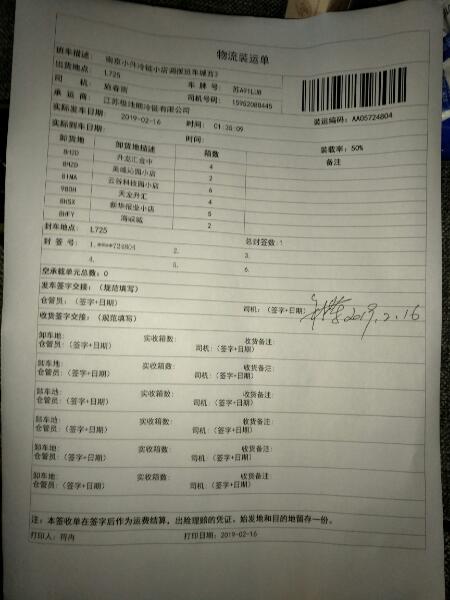 物流装运单
班车描述: 南京小件冷链小店
出货地点: L725 车 牌 号: 苏A91LU8
司 机: 司机号码: 15952088445
承 运 商: 江苏极地熊冷链有限公司
装运编码: AA05724804
实际发车日期: 2019-02-16 时间: 01:35:09
实际到车日期: 时间: 装载率: 50%
卸货地 卸货地描述 箱数 备注
8H2D 升龙汇金中 4
8HZD 美城沁园小店 2
81MA 云谷科技园小店 6
980H 天龙升汇 4
8HSX 新华报业小店 5
8HFY 海硕城 2
封车地点: L725
封 签 号: 1.****724804 2. 3. 总封签数: 1
4. 5. 6.
空承载单元总数: 0
发车签字交接: (规范填写)
仓管员: (签字+日期) 司机: (签字+日期) 2019.2.16
收货签字交接: (规范填写)
卸车地: 实收箱数: 收货备注:
仓管员: (签字+日期) 司机: (签字+日期)
卸车地: 实收箱数: 收货备注:
仓管员: (签字+日期) 司机: (签字+日期)
卸车地: 实收箱数: 收货备注:
仓管员: (签字+日期) 司机: (签字+日期)
卸车地: 实收箱数: 收货备注:
仓管员: (签字+日期) 司机: (签字+日期)
卸车地: 实收箱数: 收货备注:
仓管员: (签字+日期) 司机: (签字+日期)
卸车地: 实收箱数: 收货备注:
仓管员: (签字+日期) 司机: (签字+日期)
注: 本签收单在签字后作为运费结算, 出险理赔的凭证, 始发地和目的地留存一份。
打印人: 符冉 打印日期: 2019-02-16